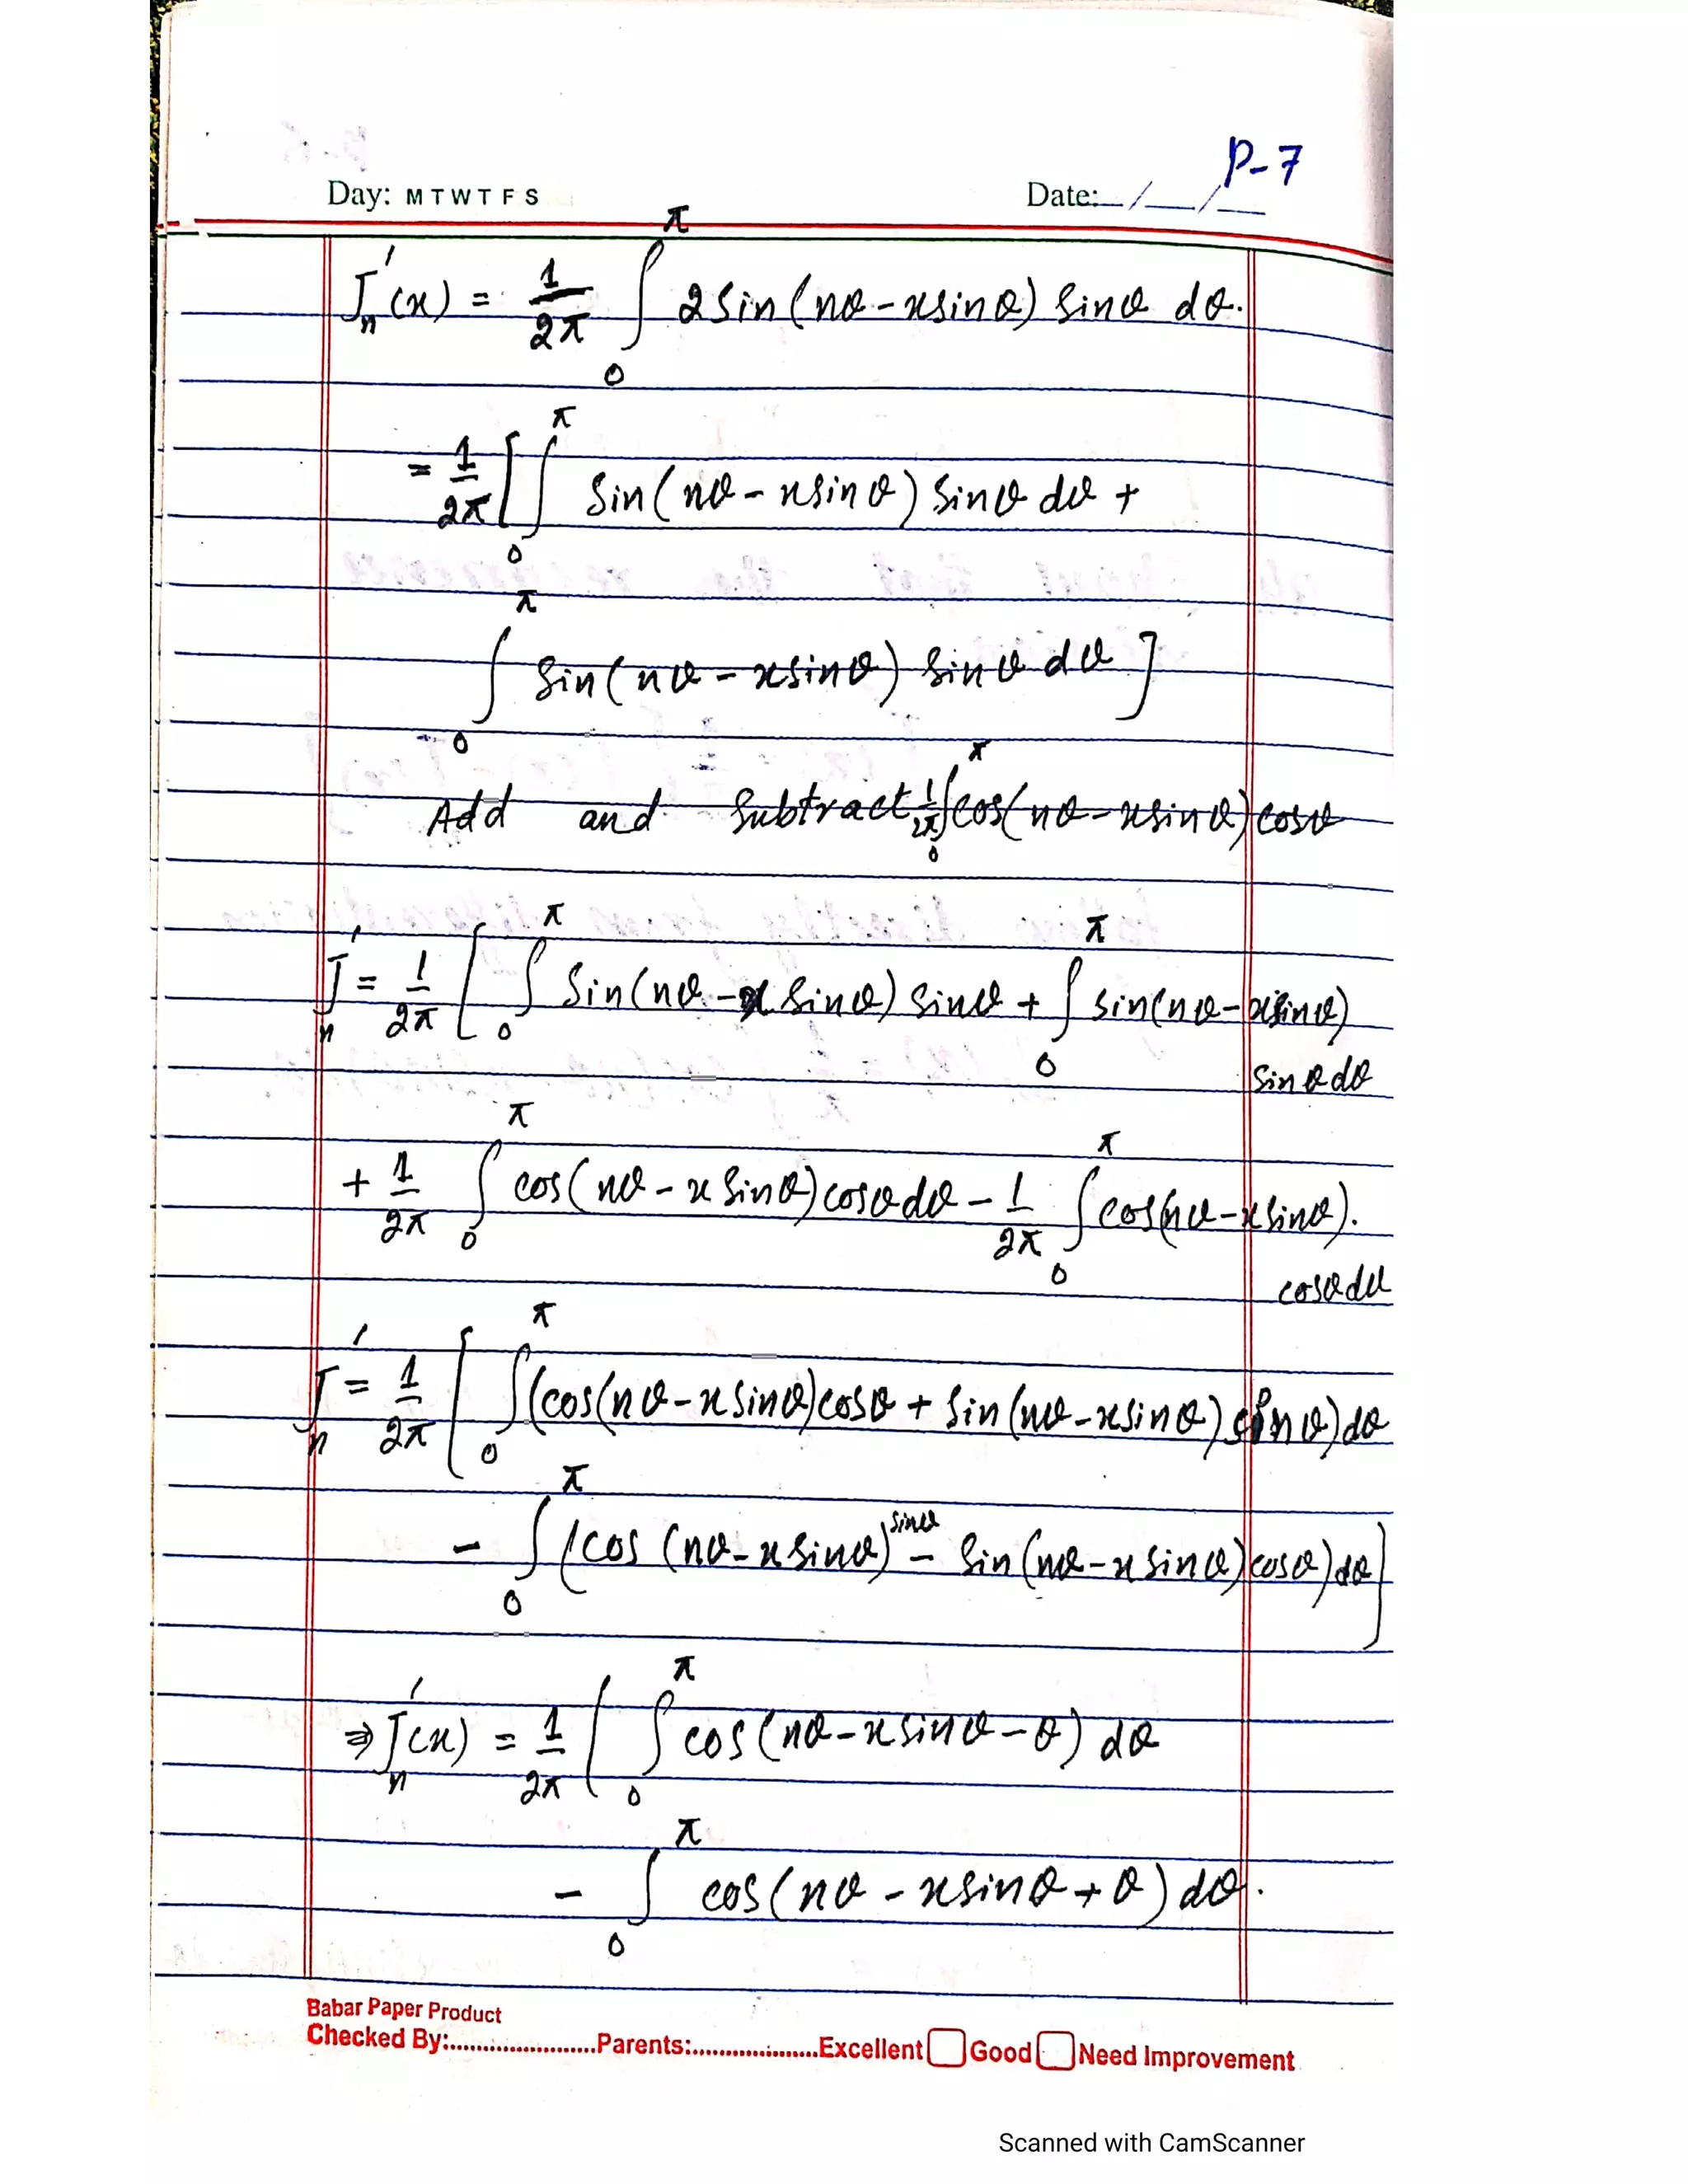 P-7
Day: M T W T F S Date: __/__/__
J'ₙ(x) = 1/2π ∫₀^π 2 Sin(nθ - x sinθ) Sinθ dθ.
= 1/2π [ ∫₀^π Sin(nθ - x Sinθ) Sinθ dθ +
∫₀^π Sin(nθ - x Sinθ) Sinθ dθ ]
Add and Subtract 1/2π ∫₀^π cos(nθ - x Sinθ) cosθ
J'ₙ = 1/2π [ ∫₀^π Sin(nθ - x Sinθ) Sinθ + ∫₀^π sin(nθ - x Sinθ)
Sinθ dθ
+ 1/2π ∫₀^π cos(nθ - x Sinθ) cosθ dθ - 1/2π ∫₀^π cos(nθ - x Sinθ).
cosθ dθ
J'ₙ = 1/2π [ ∫₀^π (cos(nθ - x Sinθ) cosθ + Sin(nθ - x Sinθ) Sinθ) dθ
- ∫₀^π (cos(nθ - x Sinθ) sinθ - Sin(nθ - x Sinθ) cosθ) dθ ]
⇒ J'ₙ(x) = 1/2π [ ∫₀^π cos(nθ - x Sinθ - θ) dθ
- ∫₀^π cos(nθ - x Sinθ + θ) dθ.
Babar Paper Product
Checked By:........................Parents:.....................Excellent Good Need Improvement
Scanned with CamScanner